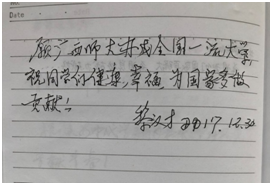 Date
愿广西师大办成全国一流大学,
祝同学们健康,幸福,为国家多做
贡献!
黎汉才 2017.12.30